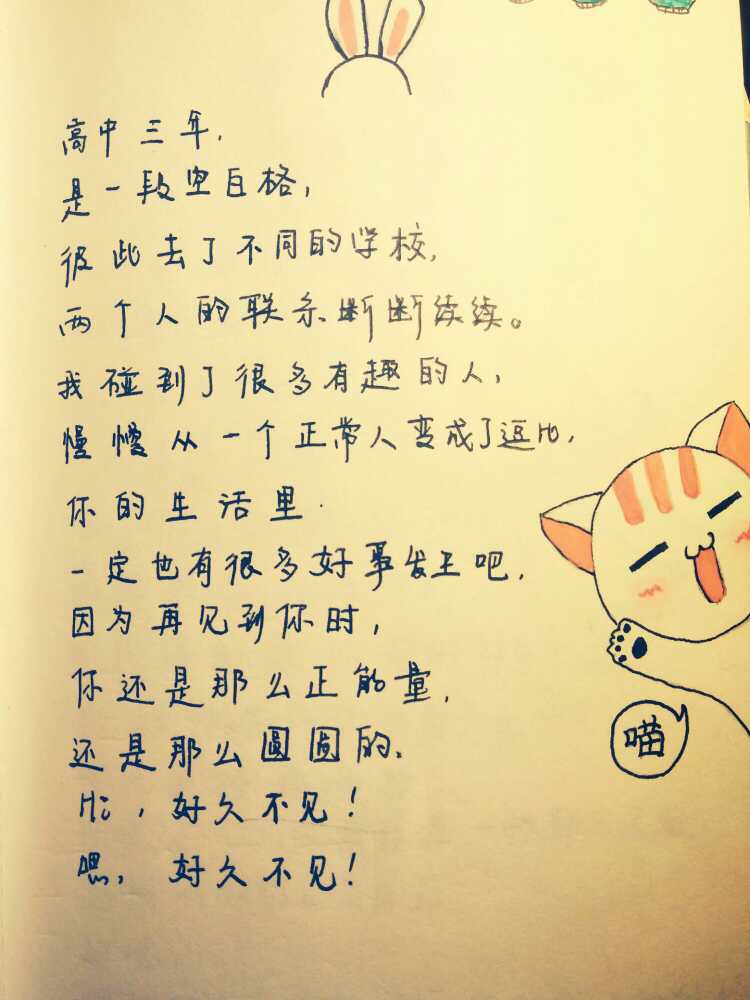 高中三年，
是一段空白格，
彼此去了不同的学校，
两个人的联系断断续续。
我碰到了很多有趣的人，
慢慢从一个正常人变成了逗比，
你的生活里
一定也有很多好事发生吧，
因为再见到你时，
你还是那么正能量，
还是那么圆圆的。
Hi，好久不见！
嘿，好久不见！
喵